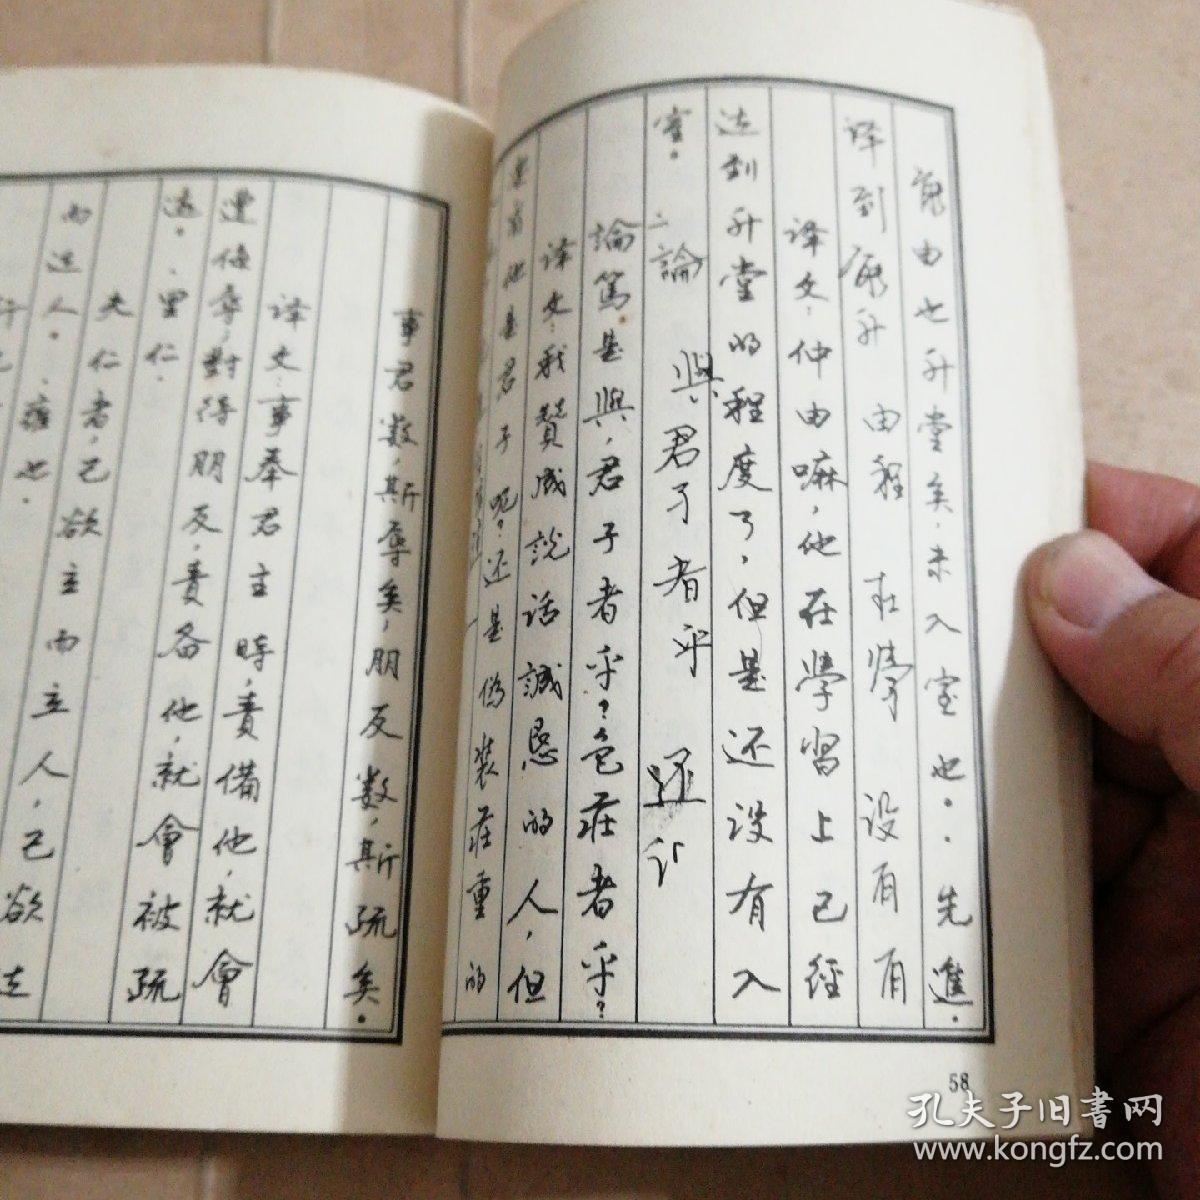 由也升堂矣,未入室也。·先進。
译文:仲由嘛,他在學習上已經
达到升堂的程度了,但是还没有入
室。
論篤是與,君子者乎?色莊者乎?
译文:我贊成說话誠恳的人,但
是君子呢?还是偽裝莊重的
译到 升 由程 在學 没有 有
論 與君子者乎 还
58
事君數,斯辱矣,朋友數,斯疏矣。
译文:事奉君主時,責備他,就會
遭侮辱,對待朋友,責备他,就會被疏
遠。·里仁.
夫仁者,己欲立而立人,己欲达
而达人。·雍也.
孔夫子旧書网
www.kongfz.com